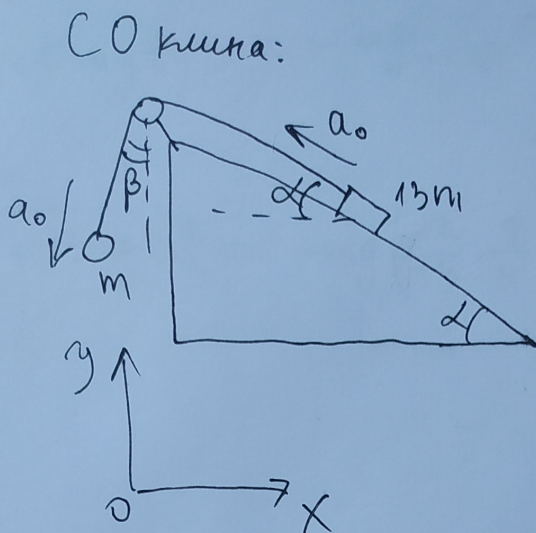 СО клина:
a₀
α
13m
a₀
β
m
α
y
0
x